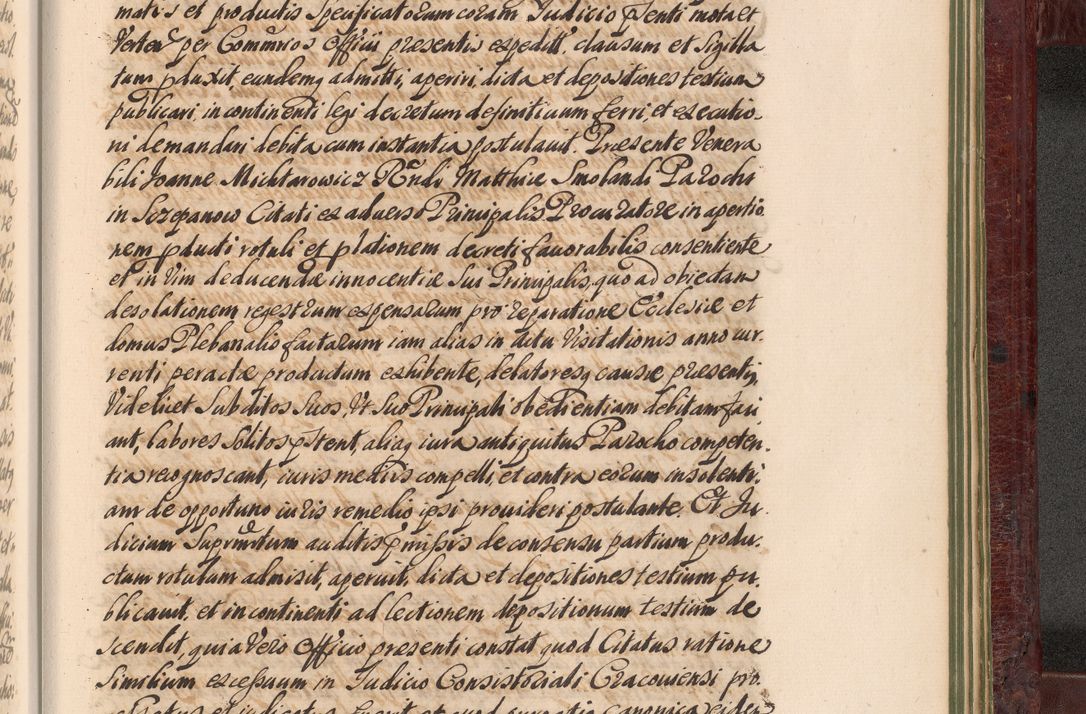 matis et productis Specificatorum coram Judicio pſenti mota et
Verteñ per Commr̃ios officii preſentis expeditũ, clausum et Sigilla
tum pduxit, eundemq admitti, aperiri, dicta et depositiones testium
publicari, in continenti legi decretum definitivum ferri, et executio-
ni demandari debita cum instantia postulavit. Præsente Venera
bili Joanne Michtarowicz Rñdi Matthiæ Smolandi Parochi
in Szczepanow Citati ex adverso Principalis Procuratore in apertio
nem pducti rotuli et plationem decreti favorabilis consentiente
et in vim deducendæ innocentiæ Sui Principalis, quo ad objectam
desolationem regestrum expensarum pro reparatione Ecclesiæ et
domus Plebanalis factarum iam alias in actu Visitationis anno cur-
renti peractæ productum exhibente, delatoresq causæ præsentis,
Videlicet Subditos Suos, Vt Suo Principali obedientiam debitam faci
ant, labores Solitos pstent, aliaq iura antiquitus Parocho competen-
tia recognoscant, iuris mediis compelli, et contra eorum insolenti-
am de opportuno iuris remedio ipsi provideri postulante. Et Ju-
dicium Suprañtum auditis pmissis de consensu partium produ-
ctum rotulum admisit, aperuit, dicta et depositiones testium pu-
blicavit, et in continenti ad lectionem depositionum testium de
scendit, quia Vero Officio præsenti constat quod Citatus ratione
Similium excessuum in Judicio Consistoriali Cracoviensi pro